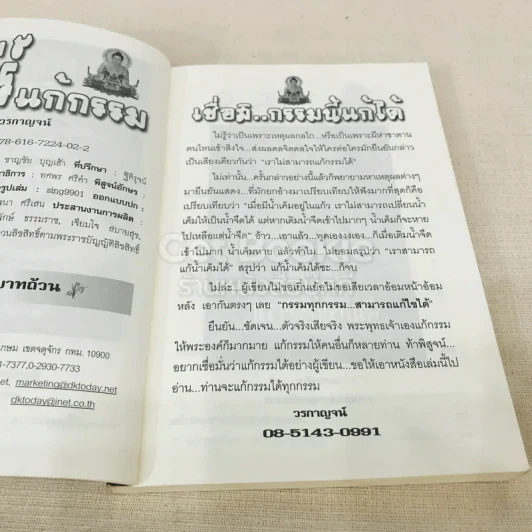 นี้แก้กรรม
วรกาญจน์
78-616-7224-02-2
ชาญชัย บุญเฮ้า ที่ปรึกษา : ฐิติรุจน์
ทศพร ศรีคำ พิสูจน์อักษร :
รูปเล่ม : sing9901 ออกแบบปก :
นา ศรีเสน ประสานงานการผลิต :
ักษ์ ธรรมราช, เจียมใจ สบายสุข,
วนลิขสิทธิ์ตามพระราชบัญญัติลิขสิทธิ์
บาทถ้วน
เกษม เขตจตุจักร กทม. 10900
1-7377,0-2930-7733
et, marketing@dktoday.net
dktoday@inet.co.th
เชื่อมิ..กรรมนี้แก้ได้
ไม่รู้ว่าเป็นเพราะเหตุผลกลใด...หรือเป็นเพราะผีห่าซาตาน
ตนไหนเข้าสิงใจ...ส่งผลดลจิตดลใจให้ใครต่อใครมักยืนยันกล่าว
เป็นเสียงเดียวกันว่า “เราไม่สามารถแก้กรรมได้”
ไม่เท่านั้น...ครั้นกล่าวอย่างนี้แล้วก็พยายามหาเหตุผลต่างๆ
มายืนยันแสดง...ที่มักยกอ้างมาเปรียบเทียบให้ฟังมากที่สุดก็คือ
เปรียบเทียบกับน้ำเค็มว่า “เมื่อมีน้ำเค็มอยู่ในแก้ว เราไม่สามารถเปลี่ยนน้ำ
เค็มให้เป็นน้ำจืดได้ แต่หากเติมน้ำจืดเข้าไปมากๆ น้ำเค็มก็จะหาย
ไปเหลือแต่น้ำจืด” อ้าว...เอาแล้ว...พูดเองงงเอง...ก็เมื่อเติมน้ำจืด
เข้าไปมาก น้ำเค็มหาย แล้วทำไมไม่ยอมสรุปว่า “เราสามารถ
แก้น้ำเค็มได้” สรุปว่า แก้น้ำเค็มได้ซะ...ก็จบ
ไม่ล่ะ...ผู้เขียนไม่ขอเยิ่นเย้อไม่ขอเสียเวลาอ้อมหน้าอ้อม
หลัง เอากันตรงๆ เลย “กรรมทุกกรรม...สามารถแก้ไขได้”
ยืนยัน...ชัดเจน...ตัวจริงเสียจริง พระพุทธเจ้าเองแก้กรรม
ให้พระองค์ก็มากมาย แก้กรรมให้คนอื่นก็หลายท่าน ท้าพิสูจน์...
อยากเชื่อมั่นว่าแก้กรรมได้อย่างผู้เขียน...ขอให้เอาหนังสือเล่มนี้ไป
อ่าน...ท่านจะแก้กรรมได้ทุกกรรม
วรกาญจน์
08-5143-0991